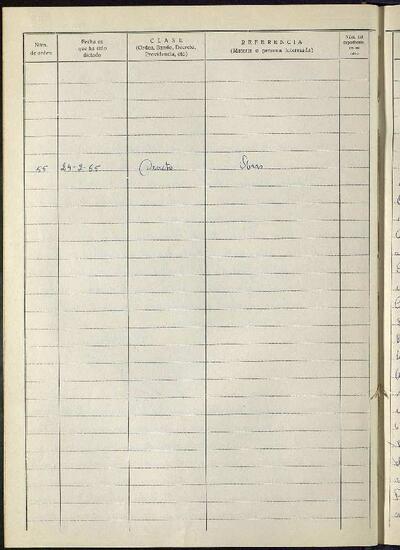 Núm. de orden
Fecha en que ha sido dictado
CLASE
(Orden, Bando, Decreto, Providencia, etc.)
REFERENCIA
(Materia o persona interesada)
55 24-2-65 Decreto Obras